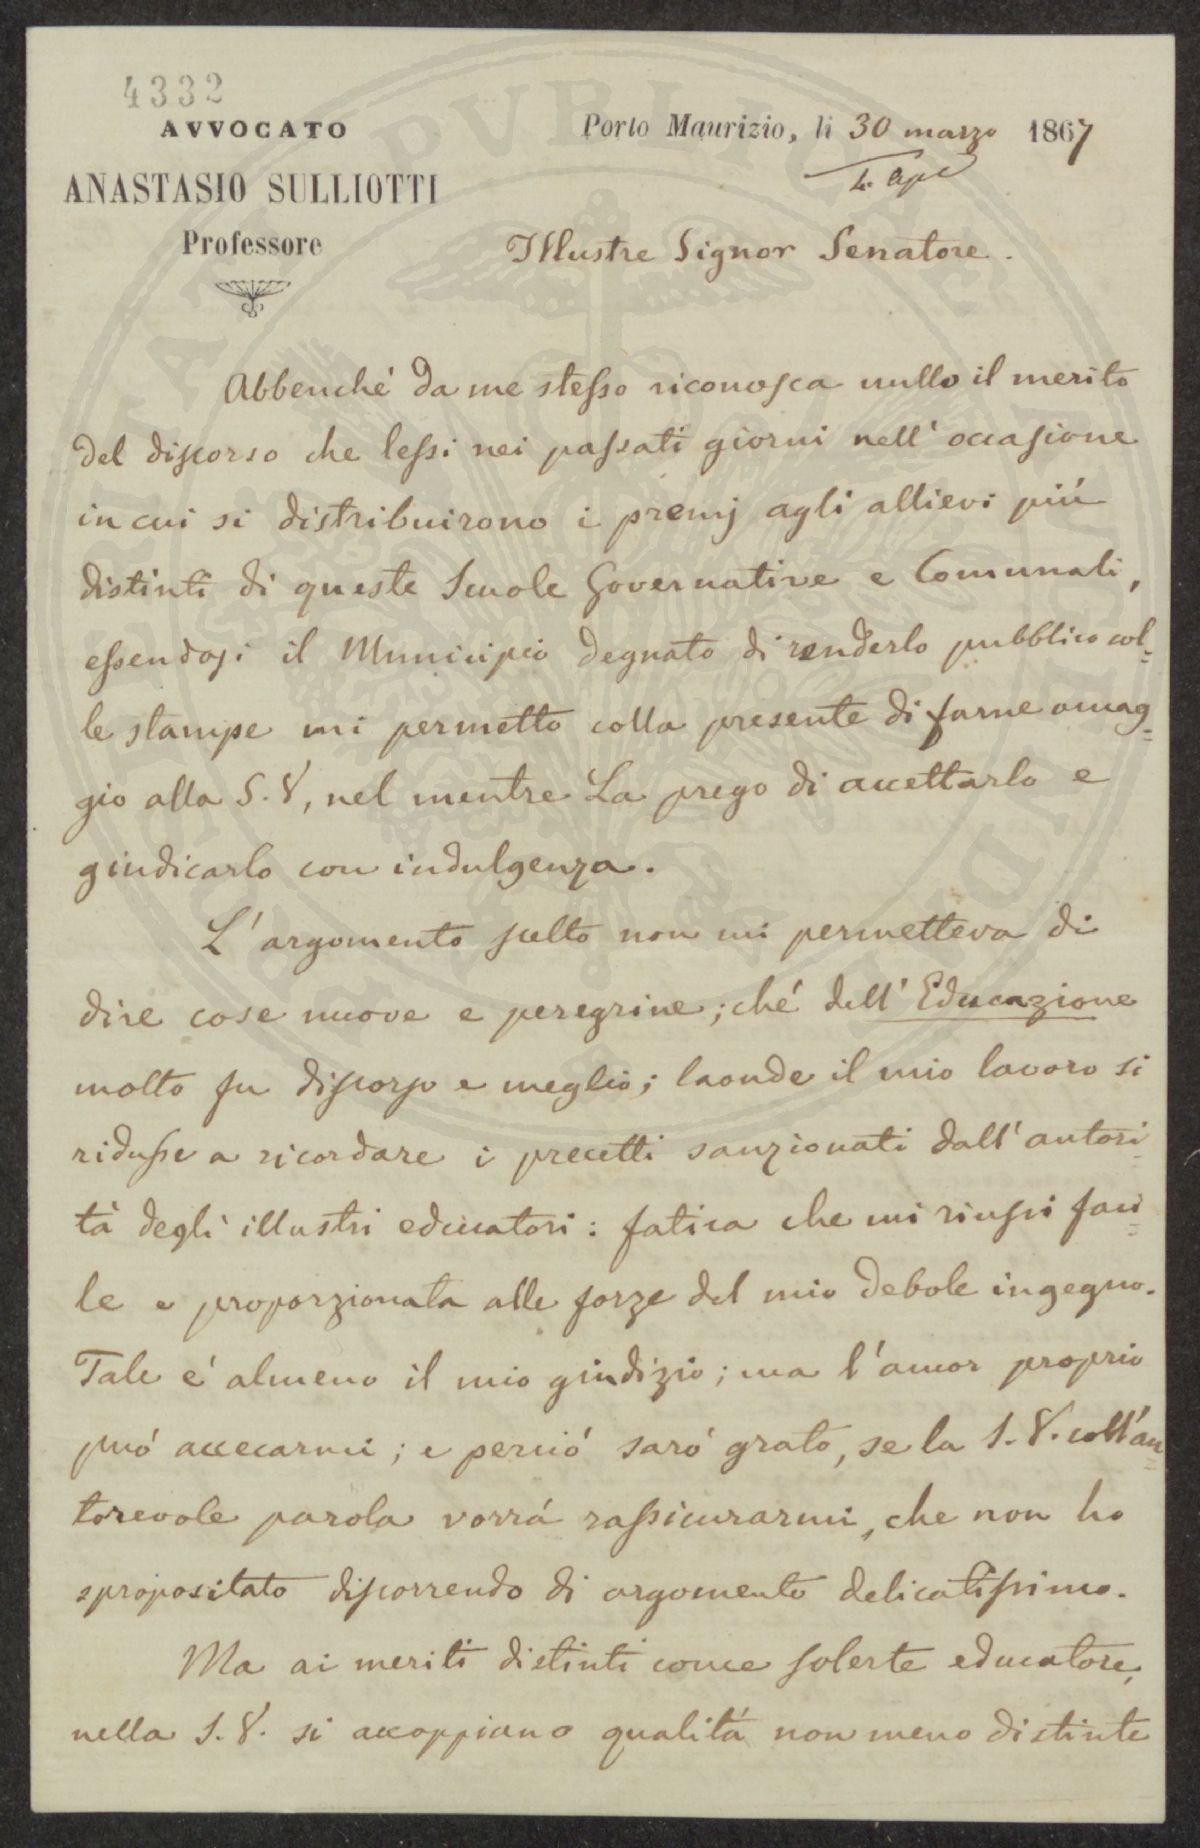 4332
AVVOCATO
ANASTASIO SULLIOTTI
Professore
Porto Maurizio, li 30 marzo 1867
Illustre Signor Senatore.
Abbenché da me stesso riconosca nullo il merito
del discorso che lessi nei passati giorni nell'occasione
in cui si distribuirono i premj agli allievi più
distinti di queste Scuole Governative e Comunali,
essendosi il Municipio degnato di renderlo pubblico col=
le stampe mi permetto colla presente di farne omag=
gio alla S.V, nel mentre La prego di accettarlo e
giudicarlo con indulgenza.
L'argomento scelto non mi permetteva di
dire cose nuove e peregrine; ché dell'Educazione
molto fu discorso e meglio; laonde il mio lavoro si
ridusse a ricordare i precetti sanzionati dall'autori=
tà degli illustri educatori: fatica che mi riuscì faci=
le e proporzionata alle forze del mio debole ingegno.
Tale é almeno il mio giudizio; ma l'amor proprio
può accecarmi; e perciò sarò grato, se la S.V. coll'au=
torevole parola vorrà rassicurarmi, che non ho
spropositato discorrendo di argomento delicatissimo.
Ma ai meriti distinti come solerte educatore,
nella S.V. si accoppiano qualità non meno distinte